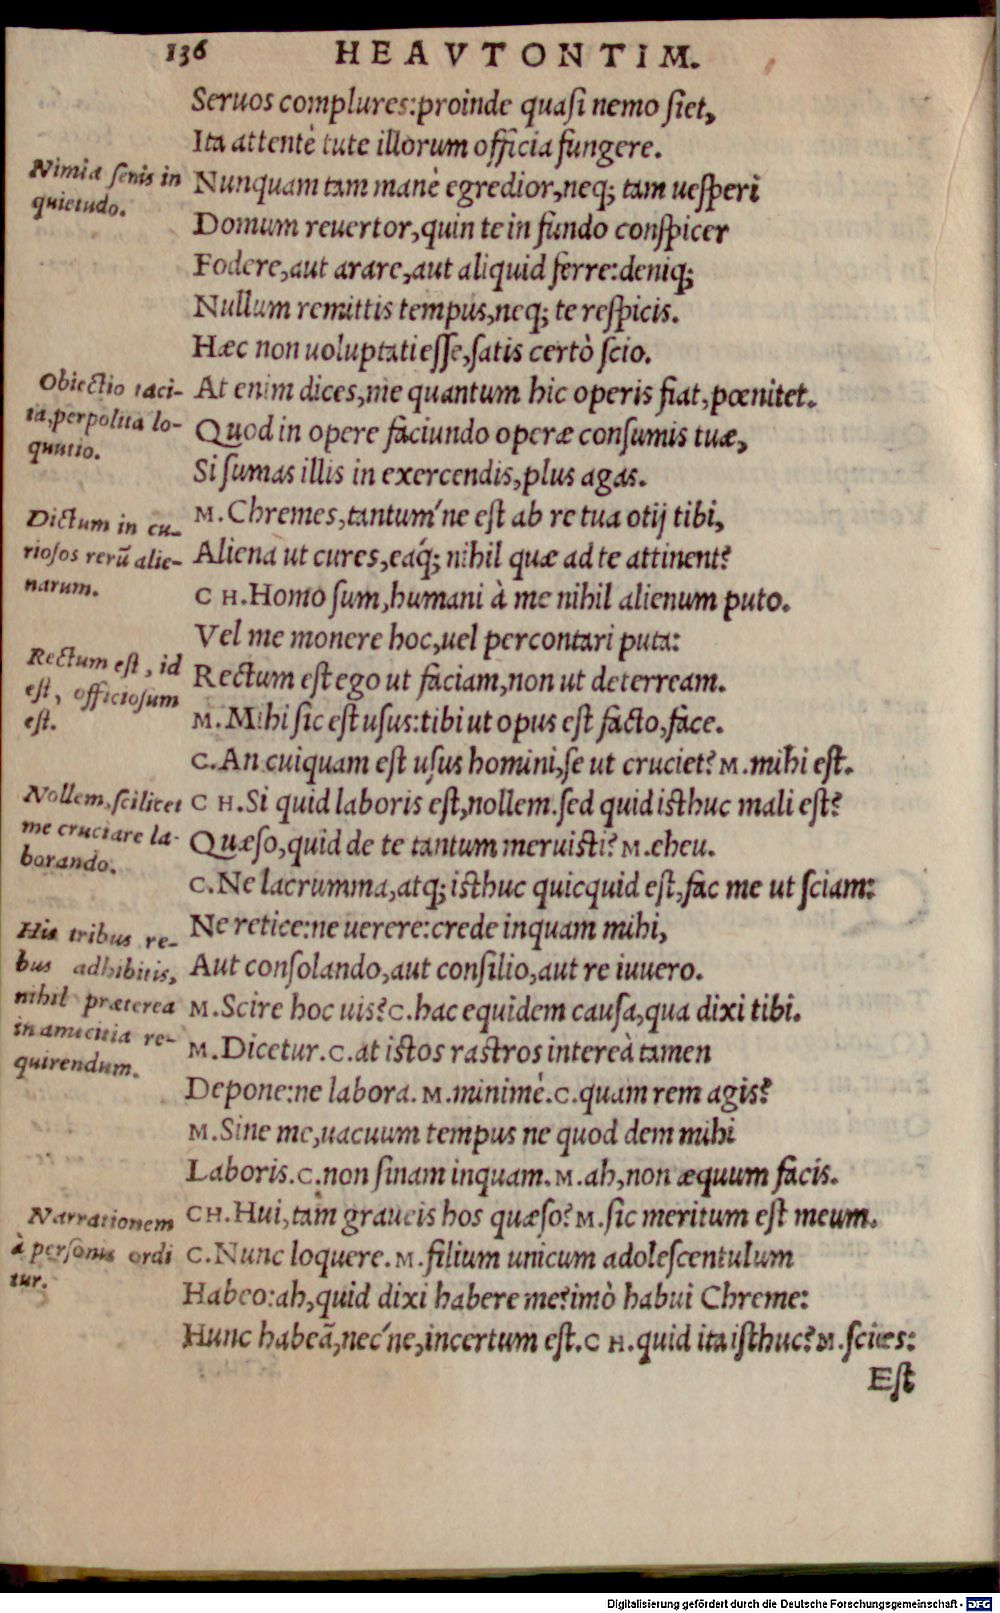 136 HEAVTONTIM.
Seruos complures:proinde quasi nemo siet,
Ita attentè tute illorum officia fungere.
Nimia senis in
quietudo.
Nunquam tam manè egredior,neq; tam uesperi
Domum reuertor,quin te in fundo conspicer
Fodere,aut arare,aut aliquid ferre:deniq;
Nullum remittis tempus,neq; te respicis.
Hæc non uoluptati esse,satis certò scio.
Obiectio taci-
ta,perpolita lo-
quutio.
At enim dices,me quantum hic operis fiat,pœnitet.
Quod in opere faciundo operæ consumis tuæ,
Si sumas illis in exercendis,plus agas.
Dictum in cu-
riosos rerũ alie-
narum.
M.Chremes,tantum'ne est ab re tua otij tibi,
Aliena ut cures,eaq́; nihil quæ ad te attinent?
C H.Homo sum,humani à me nihil alienum puto.
Vel me monere hoc,uel percontari puta:
Rectum est, id
est, officiosum
est.
Rectum est ego ut faciam,non ut deterream.
M.Mihi sic est usus:tibi ut opus est facto,face.
C.An cuiquam est usus homini,se ut cruciet? M.mihi est.
Nollem,scilicet
me cruciare la-
borando.
C H.Si quid laboris est,nollem.sed quid isthuc mali est?
Quæso,quid de te tantum meruisti? M.eheu.
C.Ne lacrumma,atq; isthuc quicquid est,fac me ut sciam:
His tribus re-
bus adhibitis,
nihil præterea
in amicitia re-
quirendum.
Ne retice:ne uerere:crede inquam mihi,
Aut consolando,aut consilio,aut re iuuero.
M.Scire hoc uis? C.hac equidem causa,qua dixi tibi.
M.Dicetur.C.at istos rastros intereà tamen
Depone:ne labora. M.minimè.C.quam rem agis?
M.Sine me,uacuum tempus ne quod dem mihi
Laboris.C.non sinam inquam. M.ah,non æquum facis.
Narrationem
à personis ordi
tur.
CH.Hui,tàm graueis hos quæso? M.sic meritum est meum.
C.Nunc loquere. M.filium unicum adolescentulum
Habeo:ah,quid dixi habere me?imò habui Chreme:
Hunc habeã,nec'ne,incertum est.C H.quid ita isthuc? M.scies:
Est
Digitalisierung gefördert durch die Deutsche Forschungsgemeinschaft - DFG